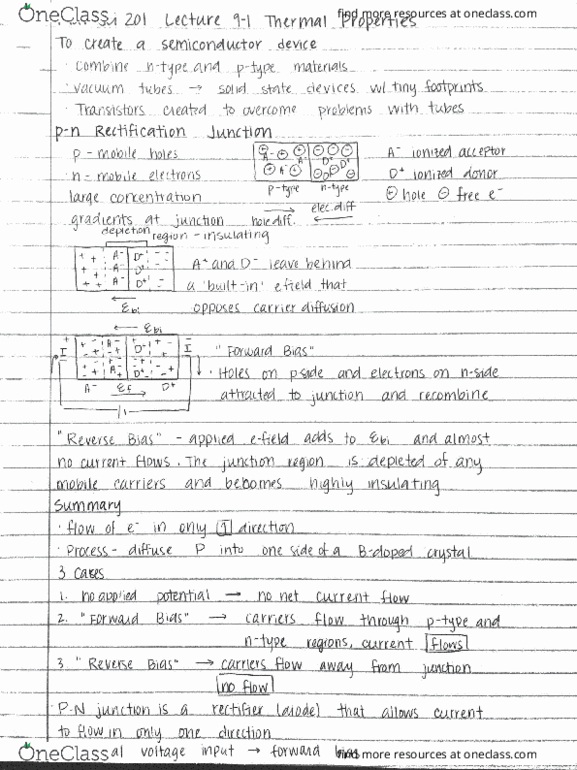 OneClass
find more resources at oneclass.com
201 Lecture 9-1 Thermal Properties
To create a semiconductor device
· Combine n-type and p-type materials
· vacuum tubes → solid state devices w/ tiny footprints
· Transistors created to overcome problems with tubes
p-n Rectification Junction
p - mobile holes
n - mobile electrons
large concentration
gradients at junction
p-type n-type
hole diff. elec. diff
A⁻ ionized acceptor
D⁺ ionized donor
⊕ hole ⊖ free e⁻
depletion region - insulating
A⁺ and D⁻ leave behind
a 'built-in' efield that
opposes carrier diffusion
Ɛbi
Ɛbi
"Forward Bias"
· Holes on pside and electrons on n-side
attracted to junction and recombine
A⁻ Ɛf D⁺
"Reverse Bias" - applied e-field adds to Ɛbi and almost
no current flows. The junction region is depleted of any
mobile carriers and becomes highly insulating
Summary
· flow of e⁻ in only 1 direction
· Process - diffuse P into one side of a B-doped crystal
3 Cases
1. no applied potential → no net current flow
2. "Forward Bias" → carriers flow through p-type and
n-type regions, current flows
3. "Reverse Bias" → carriers flow away from junction
no flow
· P-N junction is a rectifier (diode) that allows current
to flow in only one direction
OneClass
al voltage input → forward bias
find more resources at oneclass.com